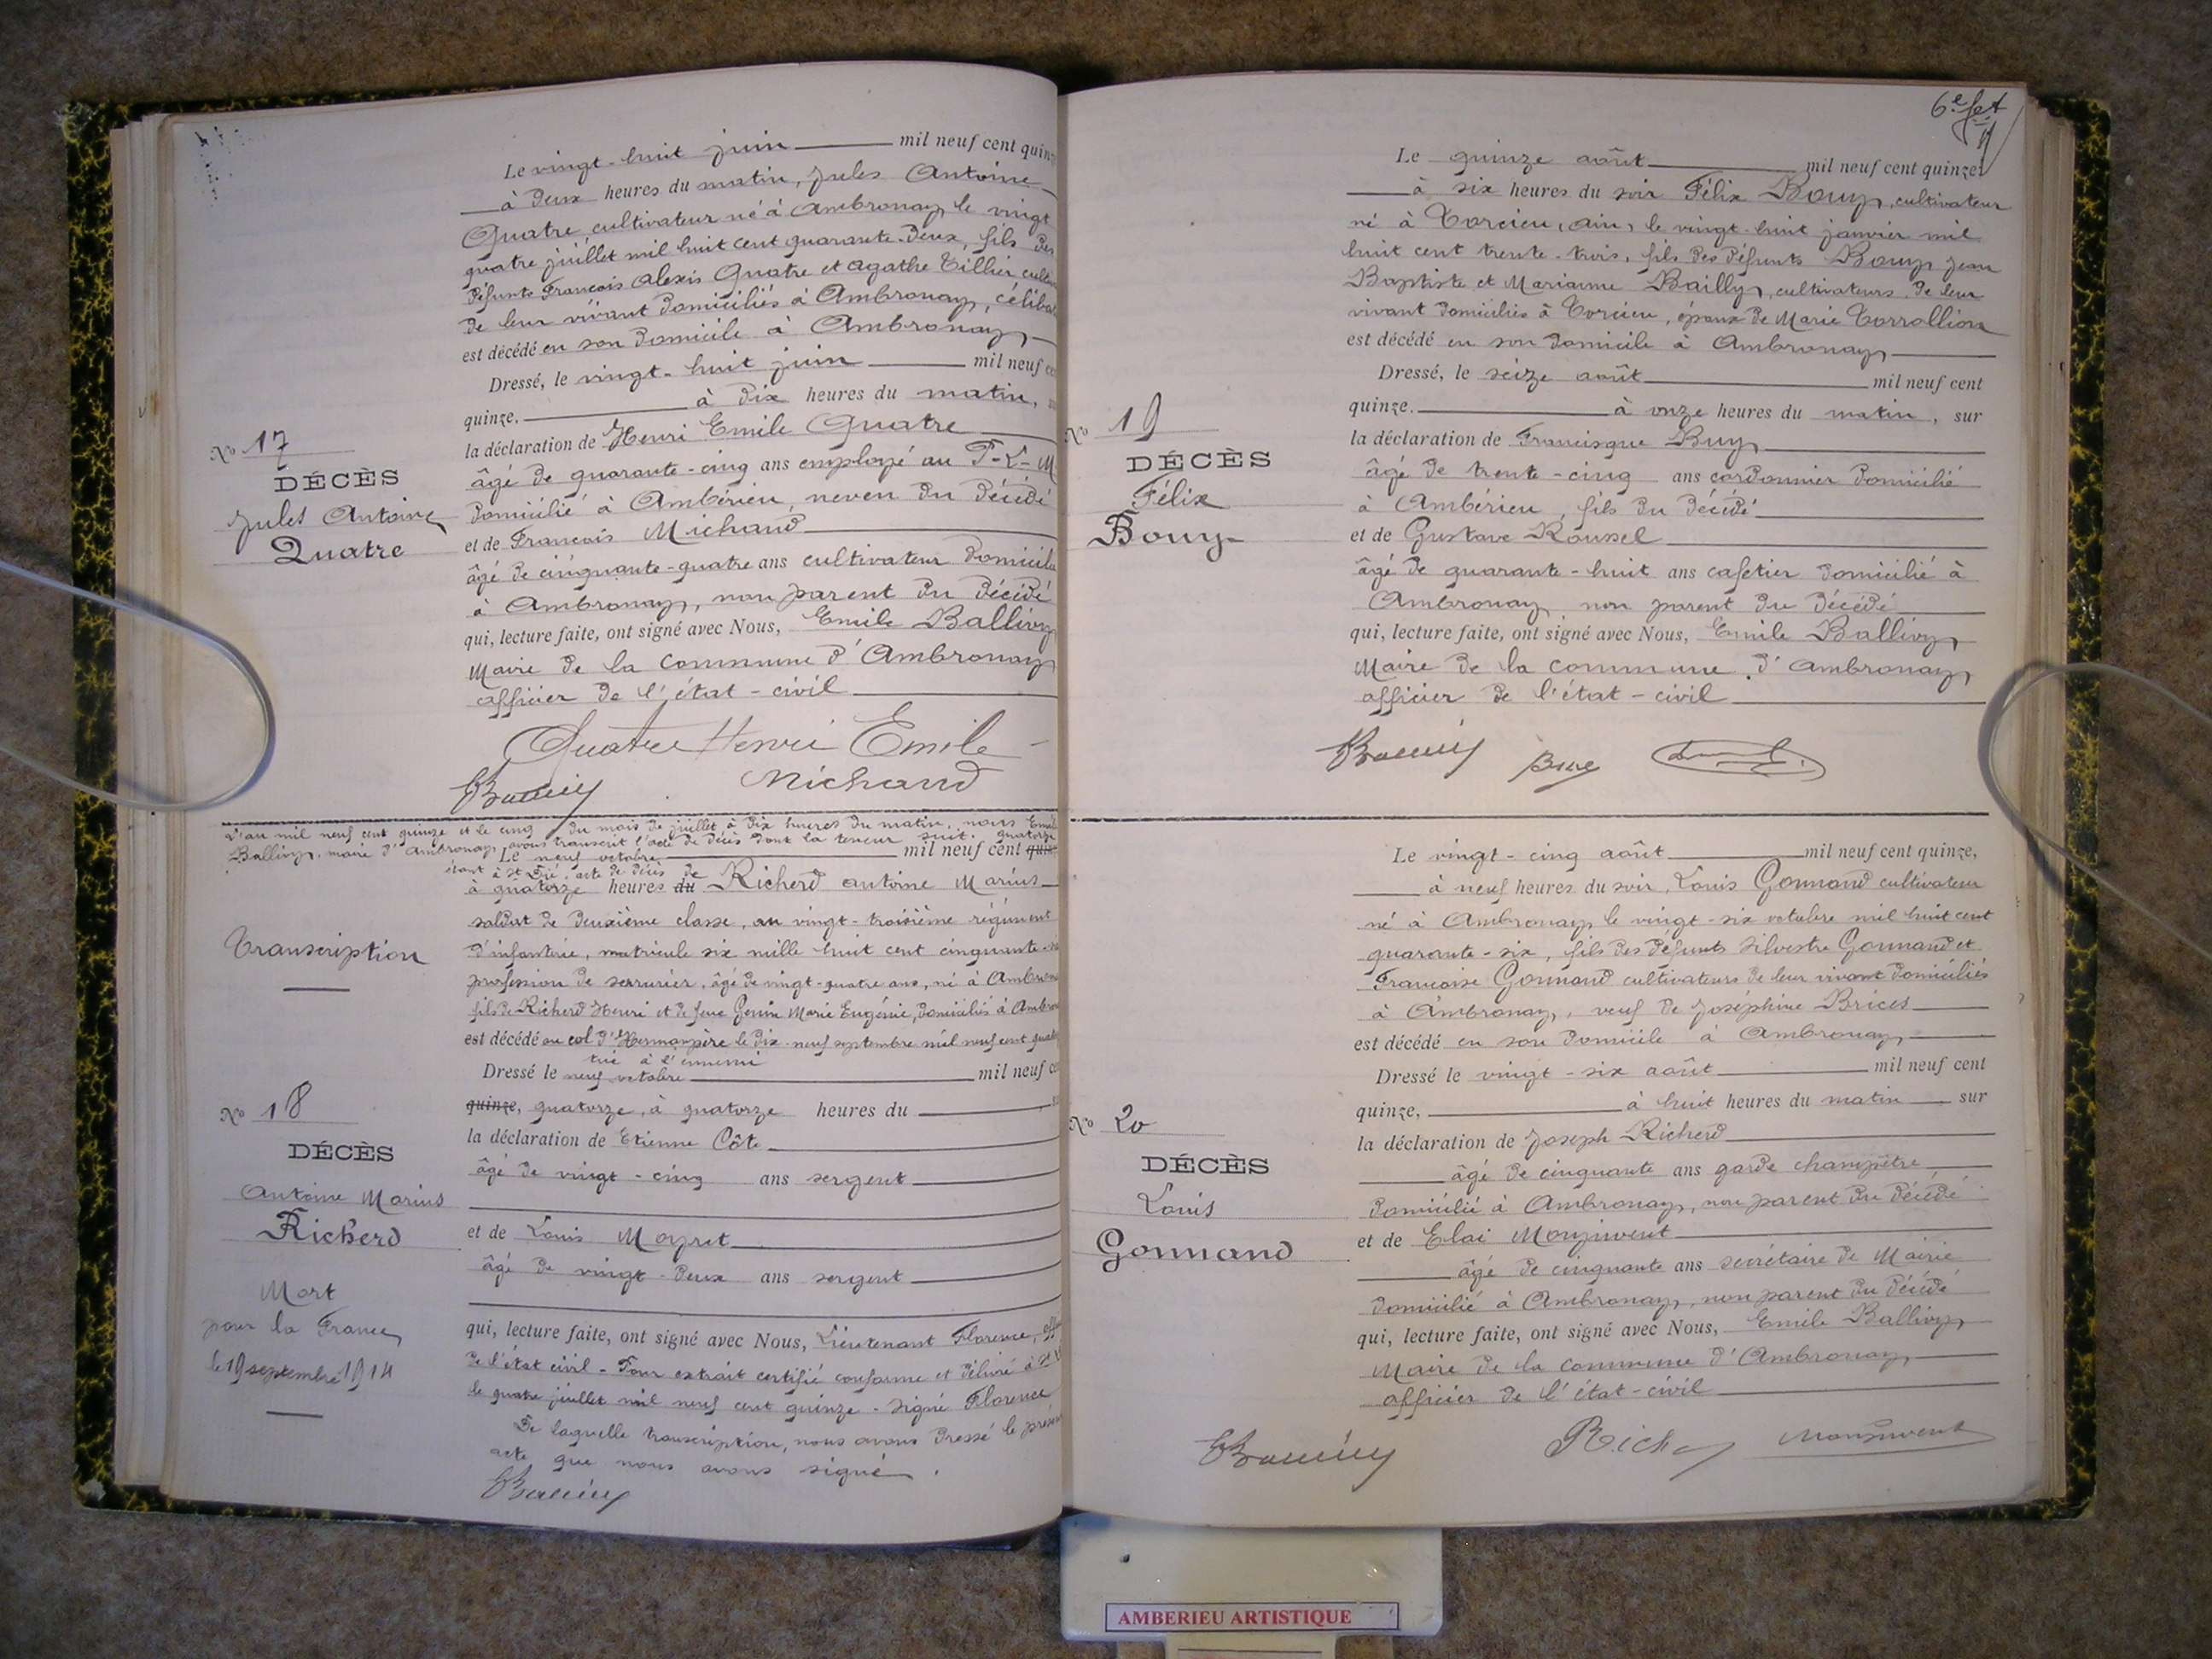 Le vingt-huit juin mil neuf cent quinze
à deux heures du matin, Jules Antoine
Quatre cultivateur né à Ambronay le vingt
quatre juillet mil huit cent quarante-deux, fils des
défunts François Alexis Quatre et Agathe Tillier
de leur vivant domiciliés à Ambronay,
est décédé en son domicile à Ambronay
Dressé, le vingt-huit juin mil neuf
quinze. à dix heures du matin,
la déclaration de Henri Emile Quatre
âgé de quarante-cinq ans employé au P-L-M
domicilié à Ambérieu, neveu du décédé
et de François Michaud
âgé de cinquante-quatre ans cultivateur
à Ambronay, non parent du décédé
qui, lecture faite, ont signé avec Nous, Emile Ballivy
Maire de la commune d'Ambronay
officier de l'état-civil
N° 17
DÉCÈS
Jules Antoine
Quatre
Quatre Henri Emile
Michaud
L'an mil neuf cent quinze et le cinq du mois de juillet à dix heures du matin, nous
Ballivy, maire d'Ambronay, avons transcrit l'acte de décès dont la teneur suit. quatorze
Le neuf octobre mil neuf cent
étant à acte de décès de
à quatorze heures du Richerd Antoine Marius
soldat de deuxième classe, au vingt-troisième régiment
d'infanterie, matricule six mille huit cent cinquante
profession de serrurier, âgé de vingt-quatre ans, né à
fils de Richerd Henri et de feue Genin Marie Eugénie, domiciliés à
est décédé au col d'Hermanpère le dix-neuf septembre mil neuf cent
tué à l'ennemi
Dressé le neuf octobre mil neuf
quinze, quatorze, à quatorze heures du
la déclaration de Etienne Côte
âgé de vingt-cinq ans sergent
et de Louis Mayret
âgé de vingt-deux ans sergent
qui, lecture faite, ont signé avec Nous, Lieutenant Florence,
de l'état civil - Pour extrait certifié conforme et délivré à
le quatre juillet mil neuf cent quinze - Signé Florence
De laquelle transcription, nous avons dressé le
acte que nous avons signé.
Transcription
N° 18
DÉCÈS
Antoine Marius
Richerd
Mort
pour la France
le 19 septembre 1914
6e
Le quinze août mil neuf cent quinze,
à six heures du soir Félix Bouy, cultivateur
né à Torcieu, Ain, le vingt-huit janvier mil
huit cent trente-trois, fils des défunts Bouy Jean
Baptiste et Marianne Bailly, cultivateurs de leur
vivant domiciliés à Torcieu, époux de Marie Torrollion
est décédé en son domicile à Ambronay
Dressé, le seize août mil neuf cent
quinze. à onze heures du matin, sur
la déclaration de Francisque Buy
âgé de trente-cinq ans cordonnier domicilié
à Ambérieu, fils du décédé
et de Gustave Roussel
âgé de quarante-huit ans cafetier domicilié à
Ambronay non parent du décédé
qui, lecture faite, ont signé avec Nous, Emile Ballivy
Maire de la commune d'Ambronay
officier de l'état-civil
N° 19
DÉCÈS
Félix
Bouy
Le vingt-cinq août mil neuf cent quinze,
à neuf heures du soir, Louis Gonnand cultivateur
né à Ambronay le vingt-six octobre mil huit cent
quarante-six, fils des défunts Silvestre Gonnand et
Françoise Gonnand cultivateurs de leur vivant domiciliés
à Ambronay, veuf de Joséphine Brices
est décédé en son domicile à Ambronay
Dressé le vingt-six août mil neuf cent
quinze, à huit heures du matin sur
la déclaration de Joseph Richerd
âgé de cinquante ans garde champêtre,
domicilié à Ambronay, non parent du décédé
et de Elai Monjuvent
âgé de cinquante ans secrétaire de Mairie
domicilié à Ambronay, non parent du décédé
qui, lecture faite, ont signé avec Nous, Emile Ballivy
Maire de la commune d'Ambronay,
officier de l'état-civil
N° 20
DÉCÈS
Louis
Gonnand
Monjuvent
AMBERIEU ARTISTIQUE